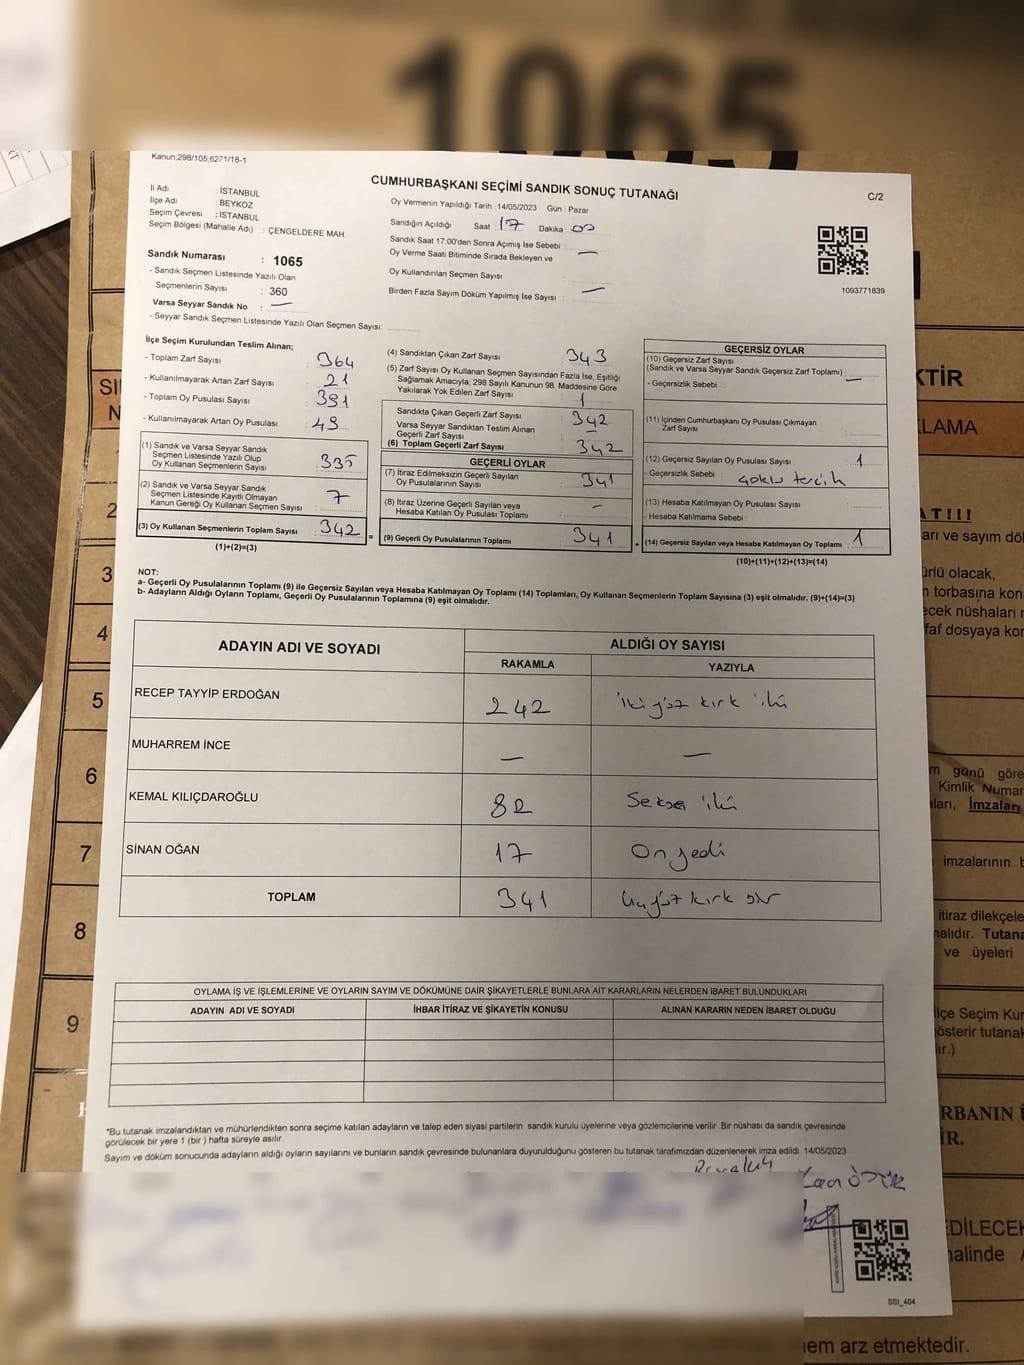 1065
Kanun:298/105;6271/18-1
CUMHURBAŞKANI SEÇİMİ SANDIK SONUÇ TUTANAĞI
C/2
İl Adı : İSTANBUL
İlçe Adı : BEYKOZ
Seçim Çevresi : İSTANBUL
Seçim Bölgesi (Mahalle Adı) : ÇENGELDERE MAH.
Oy Vermenin Yapıldığı Tarih : 14/05/2023 Gün : Pazar
Sandığın Açıldığı Saat : 17 Dakika : 00
Sandık Saat 17:00'den Sonra Açımış İse Sebebi : —
Oy Verme Saati Bitiminde Sırada Bekleyen ve
Oy Kullandırılan Seçmen Sayısı :
Birden Fazla Sayım Döküm Yapılmış İse Sayısı : —
1093771839
Sandık Numarası : 1065
- Sandık Seçmen Listesinde Yazılı Olan
Seçmenlerin Sayısı : 360
Varsa Seyyar Sandık No : —
- Seyyar Sandık Seçmen Listesinde Yazılı Olan Seçmen Sayısı:
İlçe Seçim Kurulundan Teslim Alınan;
- Toplam Zarf Sayısı : 364
- Kullanılmayarak Artan Zarf Sayısı : 21
- Toplam Oy Pusulası Sayısı : 391
- Kullanılmayarak Artan Oy Pusulası : 49
(1) Sandık ve Varsa Seyyar Sandık
Seçmen Listesinde Yazılı Olup
Oy Kullanan Seçmenlerin Sayısı : 335
(2) Sandık ve Varsa Seyyar Sandık
Seçmen Listesinde Kayıtlı Olmayan
Kanun Gereği Oy Kullanan Seçmen Sayısı : 7
(3) Oy Kullanan Seçmenlerin Toplam Sayısı : 342
(1)+(2)=(3)
(4) Sandıktan Çıkan Zarf Sayısı : 343
(5) Zarf Sayısı Oy Kullanan Seçmen Sayısından Fazla İse, Eşitliği
Sağlamak Amacıyla; 298 Sayılı Kanunun 98. Maddesine Göre
Yakılarak Yok Edilen Zarf Sayısı : 1
Sandıkta Çıkan Geçerli Zarf Sayısı : 342
Varsa Seyyar Sandıktan Teslim Alınan
Geçerli Zarf Sayısı : —
(6) Toplam Geçerli Zarf Sayısı : 342
GEÇERLİ OYLAR
(7) İtiraz Edilmeksizin Geçerli Sayılan
Oy Pusulalarının Sayısı : 341
(8) İtiraz Üzerine Geçerli Sayılan veya
Hesaba Katılan Oy Pusulası Toplamı : —
= (9) Geçerli Oy Pusulalarının Toplamı : 341
GEÇERSİZ OYLAR
(10) Geçersiz Zarf Sayısı
(Sandık ve Varsa Seyyar Sandık Geçersiz Zarf Toplamı) : —
- Geçersizlik Sebebi :
(11) İçinden Cumhurbaşkanı Oy Pusulası Çıkmayan
Zarf Sayısı :
(12) Geçersiz Sayılan Oy Pusulası Sayısı : 1
- Geçersizlik Sebebi : çoklu tercih
(13) Hesaba Katılmayan Oy Pusulası Sayısı :
- Hesaba Katılmama Sebebi :
+ (14) Geçersiz Sayılan veya Hesaba Katılmayan Oy Toplamı : 1
(10)+(11)+(12)+(13)=(14)
NOT:
a- Geçerli Oy Pusulalarının Toplamı (9) ile Geçersiz Sayılan veya Hesaba Katılmayan Oy Toplamı (14) Toplamları, Oy Kullanan Seçmenlerin Toplam Sayısına (3) eşit olmalıdır. (9)+(14)=(3)
b- Adayların Aldığı Oyların Toplamı, Geçerli Oy Pusulalarının Toplamına (9) eşit olmalıdır.
ADAYIN ADI VE SOYADI
ALDIĞI OY SAYISI
RAKAMLA YAZIYLA
RECEP TAYYİP ERDOĞAN 242 iki yüz kırk iki
MUHARREM İNCE — —
KEMAL KILIÇDAROĞLU 82 Seksen iki
SİNAN OĞAN 17 On yedi
TOPLAM 341 üç yüz kırk bir
OYLAMA İŞ VE İŞLEMLERİNE VE OYLARIN SAYIM VE DÖKÜMÜNE DAİR ŞİKAYETLERLE BUNLARA AİT KARARLARIN NELERDEN İBARET BULUNDUKLARI
ADAYIN ADI VE SOYADI İHBAR İTİRAZ VE ŞİKAYETİN KONUSU ALINAN KARARIN NEDEN İBARET OLDUĞU
*Bu tutanak imzalandıktan ve mühürlendikten sonra seçime katılan adayların ve talep eden siyasi partilerin sandık kurulu üyelerine veya gözlemcilerine verilir. Bir nüshası da sandık çevresinde
görülecek bir yere 1 (bir ) hafta süreyle asılır.
Sayım ve döküm sonucunda adayların aldığı oyların sayılarını ve bunların sandık çevresinde bulunanlara duyurulduğunu gösteren bu tutanak tarafımızdan düzenlenerek imza edildi. 14/05/2023
SSI_404
2
3
4
5
6
7
8
9
KTİR
LAMA
A T ! ! !
arı ve sayım dök
ürlü olacak,
n torbasına kon
ecek nüshaları
ffaf dosyaya kor
m günü göre
Kimlik Numar
ları, İmzaları
imzalarının b
itiraz dilekçele
nalıdır. Tutana
ve üyeleri
İlçe Seçim Kur
österir tutanak
ır.)
RBANIN
İR.
EDİLECEK
nalinde
em arz etmektedir.